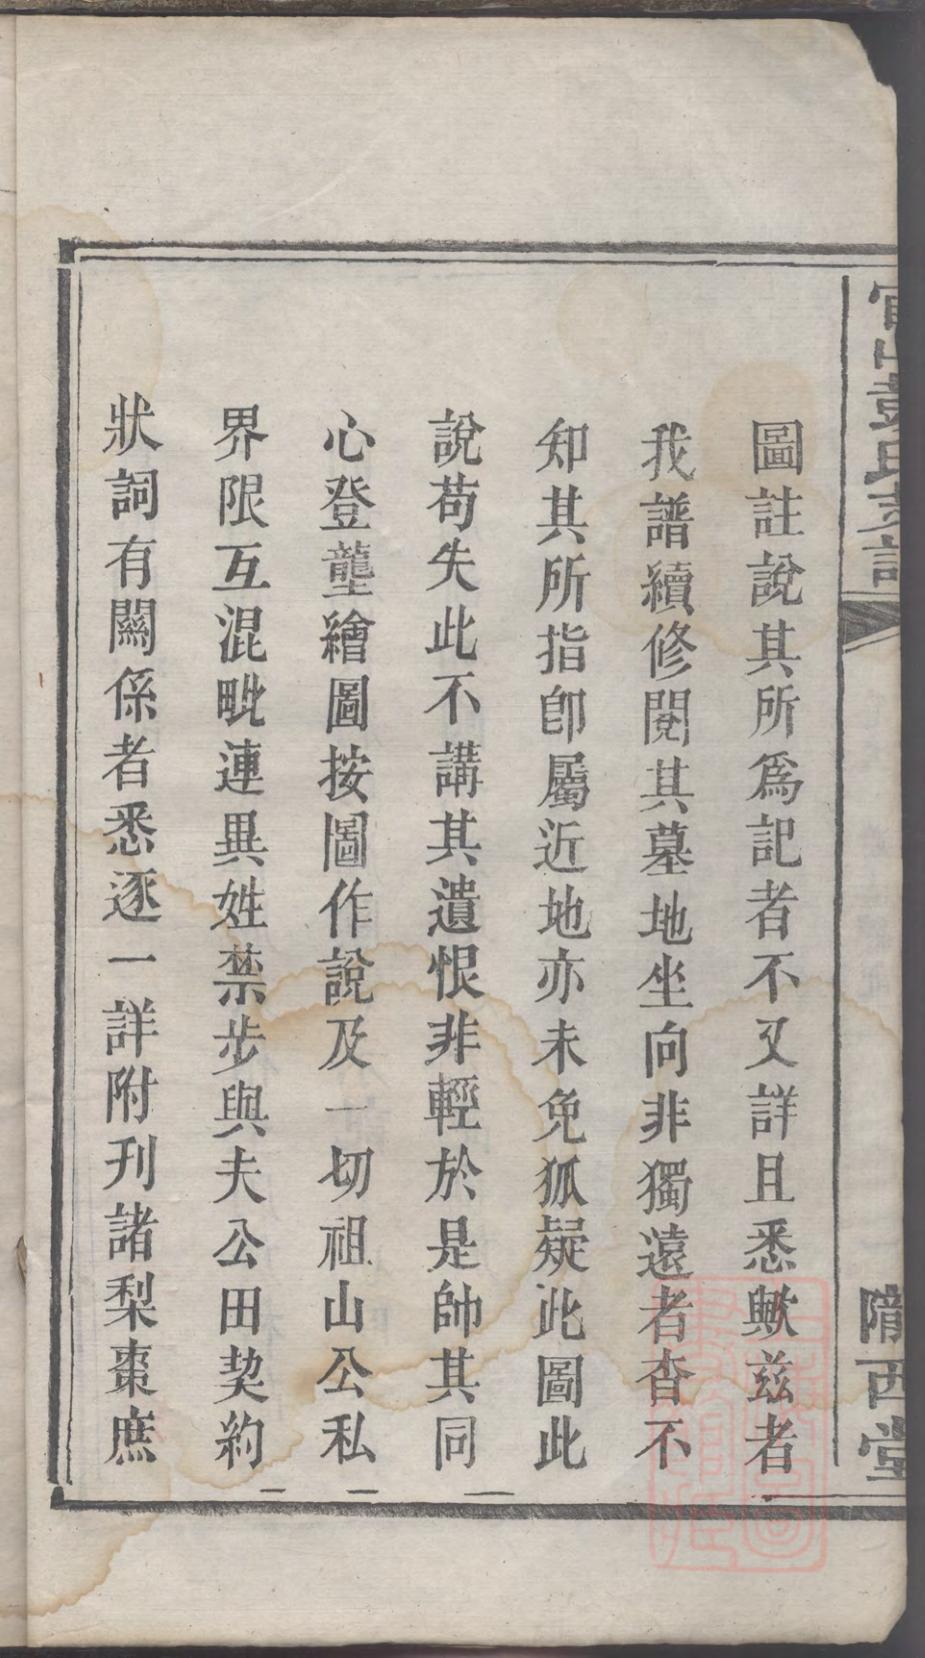 官山彭氏支譜
隴西堂
圖註說其所爲記者不又詳且悉歟兹者
我譜續修閱其墓地坐向非獨遠者杳不
知其所指卽屬近地亦未免狐疑此圖此
說苟失此不講其遺恨非輕於是帥其同
心登壟繪圖按圖作說及一切祖山公私
界限互混毗連異姓禁步與夫公田契約
狀詞有關係者悉逐一詳附刊諸梨棗庶